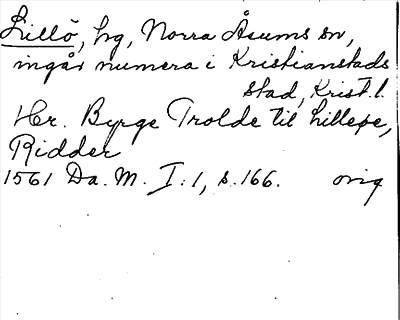 Lillö, hg, Norra Åsums sn,
ingår numera i Kristianstads
stad, Krist. l.
Hr. Byrge Trolde til Lilleøe,
Ridder
1561 Da. M. I: 1, s. 166. orig